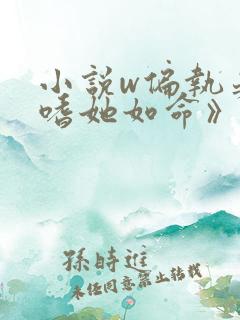 小說w偏執
嗜她如命》
孫時進
未经同意禁止转载